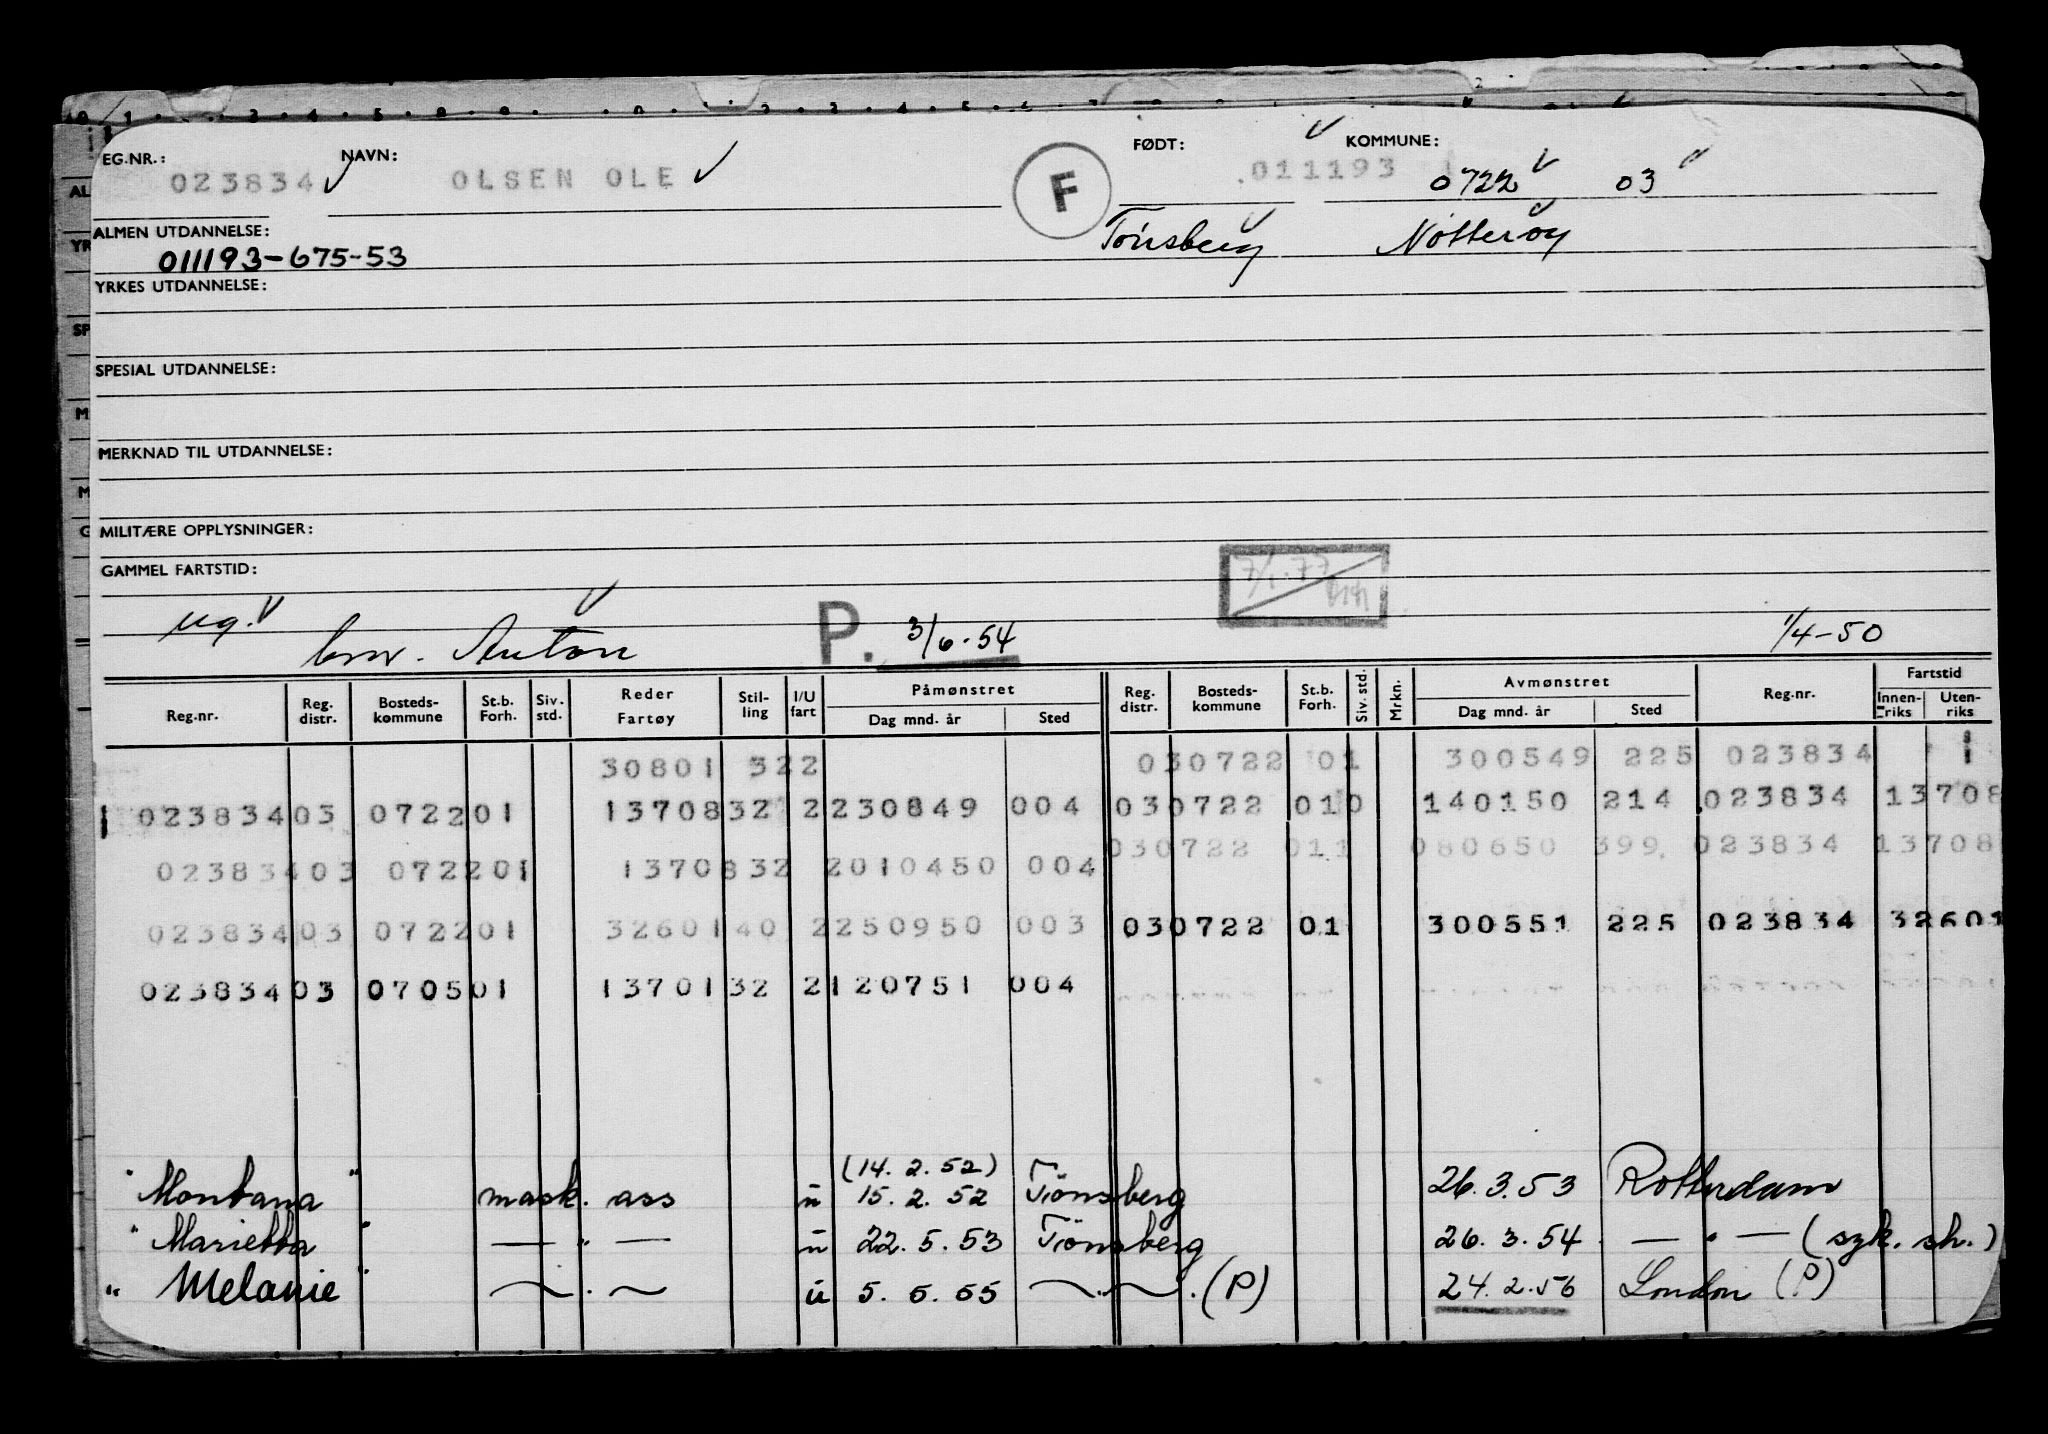 EG.NR.: 023834 NAVN: OLSEN OLE F FØDT: 011193 KOMMUNE: 0722 03
ALMEN UTDANNELSE: Tönsberg Nötteröy
011193-675-53
YRKES UTDANNELSE:
SPESIAL UTDANNELSE:
MERKNAD TIL UTDANNELSE:
MILITÆRE OPPLYSNINGER:
GAMMEL FARTSTID: 7/1.77
ug. Anton P. 3/6-54 1/4-50
Reg.nr. Reg. distr. Bosteds-kommune St.b. Forh. Siv. std. Reder Fartøy Stil-ling I/U fart Påmønstret Dag mnd. år Sted Reg. distr. Bosteds-kommune St.b. Forh. Siv. std. Mrkn. Avmønstret Dag mnd. år Sted Reg.nr. Fartstid Innen-riks Uten-riks
30801 322 030722 01 300549 225 023834 1
023834 03 072201 13708 32 2 230849 004 030722 010 140150 214 023834 13708
030722 011 080650 399 023834 13708
023834 03 072201 13708 32 2 010450 004
023834 03 072201 32601 40 2 250950 003 030722 01 300551 225 023834 32601
023834 03 070501 13701 32 2 120751 004
(14.2.52)
"Montana" mask. ass u 15.2.52 Tönsberg 26.3.53 Rotterdam
"Marietta" — " — u 22.5.53 Tönsberg 26.3.54 — " — (syk. sh.)
"Melanie" — " — u 5.5.55 — " — (P) 24.2.56 London (P)